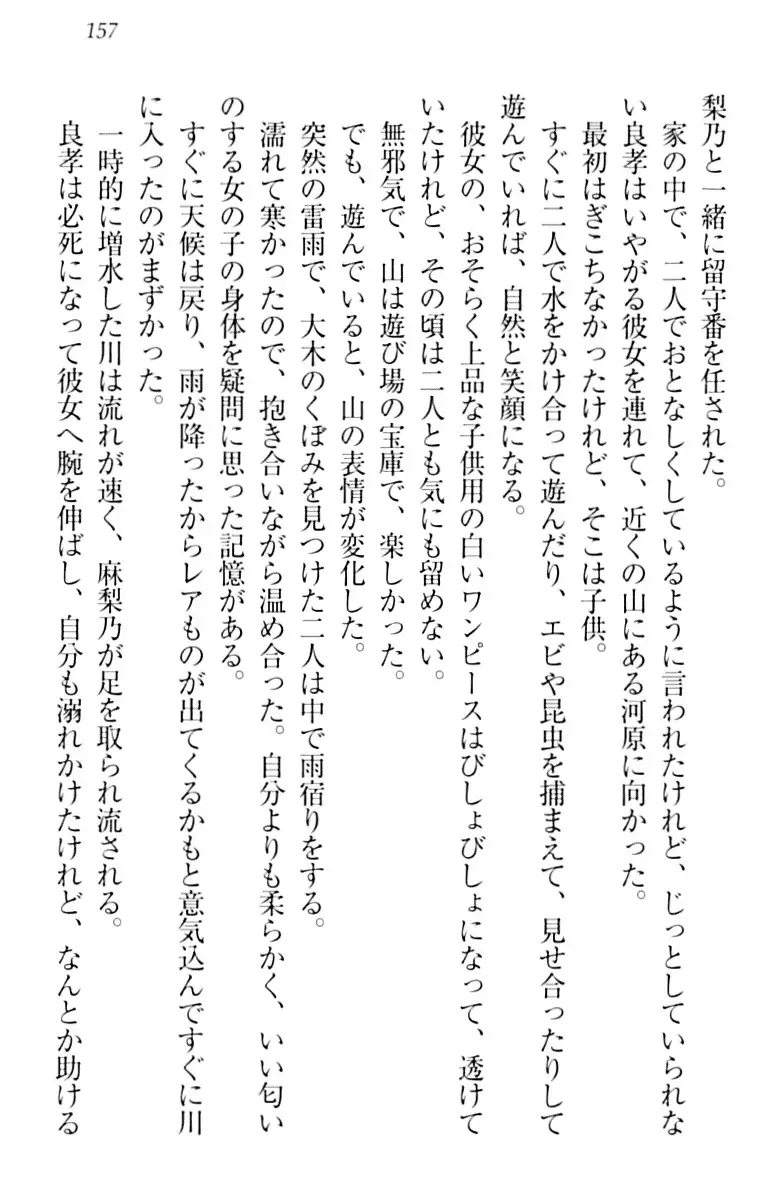 157
梨乃と一緒に留守番を任された。
　家の中で、二人でおとなしくしているように言われたけれど、じっとしていられな
い良孝はいやがる彼女を連れて、近くの山にある河原に向かった。
　最初はぎこちなかったけれど、そこは子供。
　すぐに二人で水をかけ合って遊んだり、エビや昆虫を捕まえて、見せ合ったりして
遊んでいれば、自然と笑顔になる。
　彼女の、おそらく上品な子供用の白いワンピースはびしょびしょになって、透けて
いたけれど、その頃は二人とも気にも留めない。
　無邪気で、山は遊び場の宝庫で、楽しかった。
　でも、遊んでいると、山の表情が変化した。
　突然の雷雨で、大木のくぼみを見つけた二人は中で雨宿りをする。
　濡れて寒かったので、抱き合いながら温め合った。自分よりも柔らかく、いい匂い
のする女の子の身体を疑問に思った記憶がある。
　すぐに天候は戻り、雨が降ったからレアものが出てくるかもと意気込んですぐに川
に入ったのがまずかった。
　一時的に増水した川は流れが速く、麻梨乃が足を取られ流される。
　良孝は必死になって彼女へ腕を伸ばし、自分も溺れかけたけれど、なんとか助ける